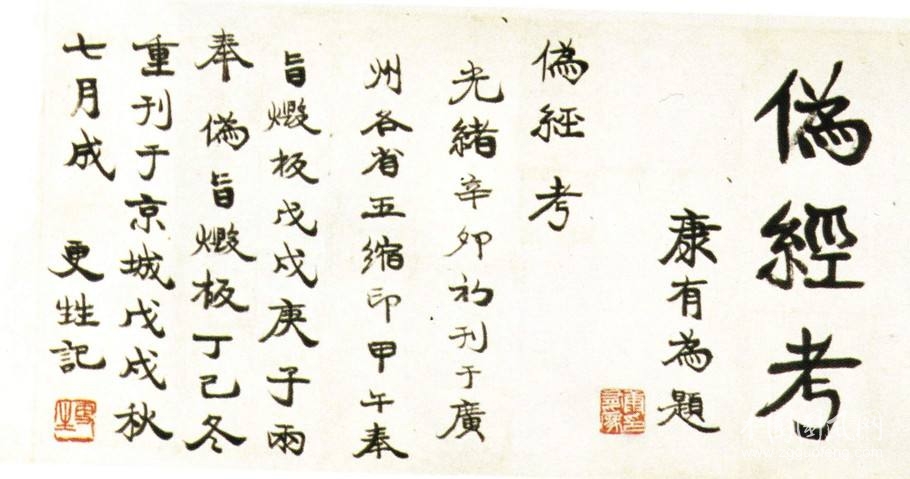 偽經考
康有為題
偽經考
光緒辛卯初刊于廣
州各省五縮印甲午奉
旨燬板戊戌庚子兩
奉偽旨燬板丁巳冬
重刊于京城戊戌秋
七月成 更甡記